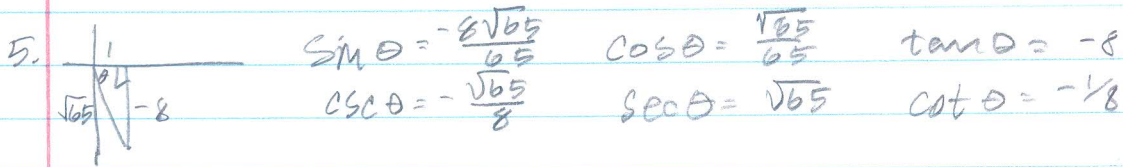 5. 1 sin θ = -8√65/65 cos θ = √65/65 tan θ = -8
√65 θ -8 csc θ = -√65/8 sec θ = √65 cot θ = -1/8